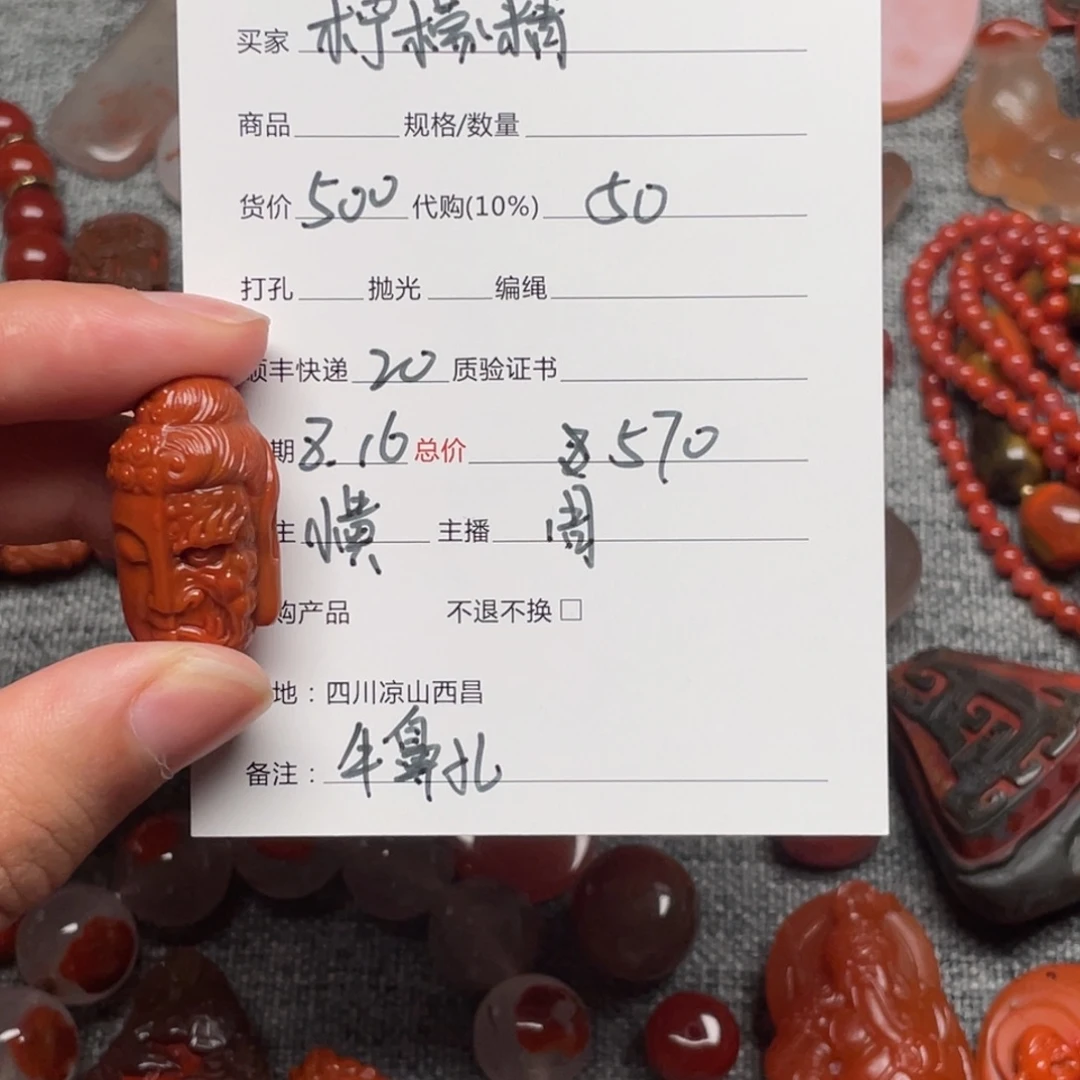 买家 柠檬精
商品 规格/数量
货价 500 代购(10%) 50
打孔 抛光 编绳
顺丰快递 20 质验证书
期 8.16 总价 570
主 横 主播 周
购产品 不退不换 □
地：四川凉山西昌
备注：牛鼻孔